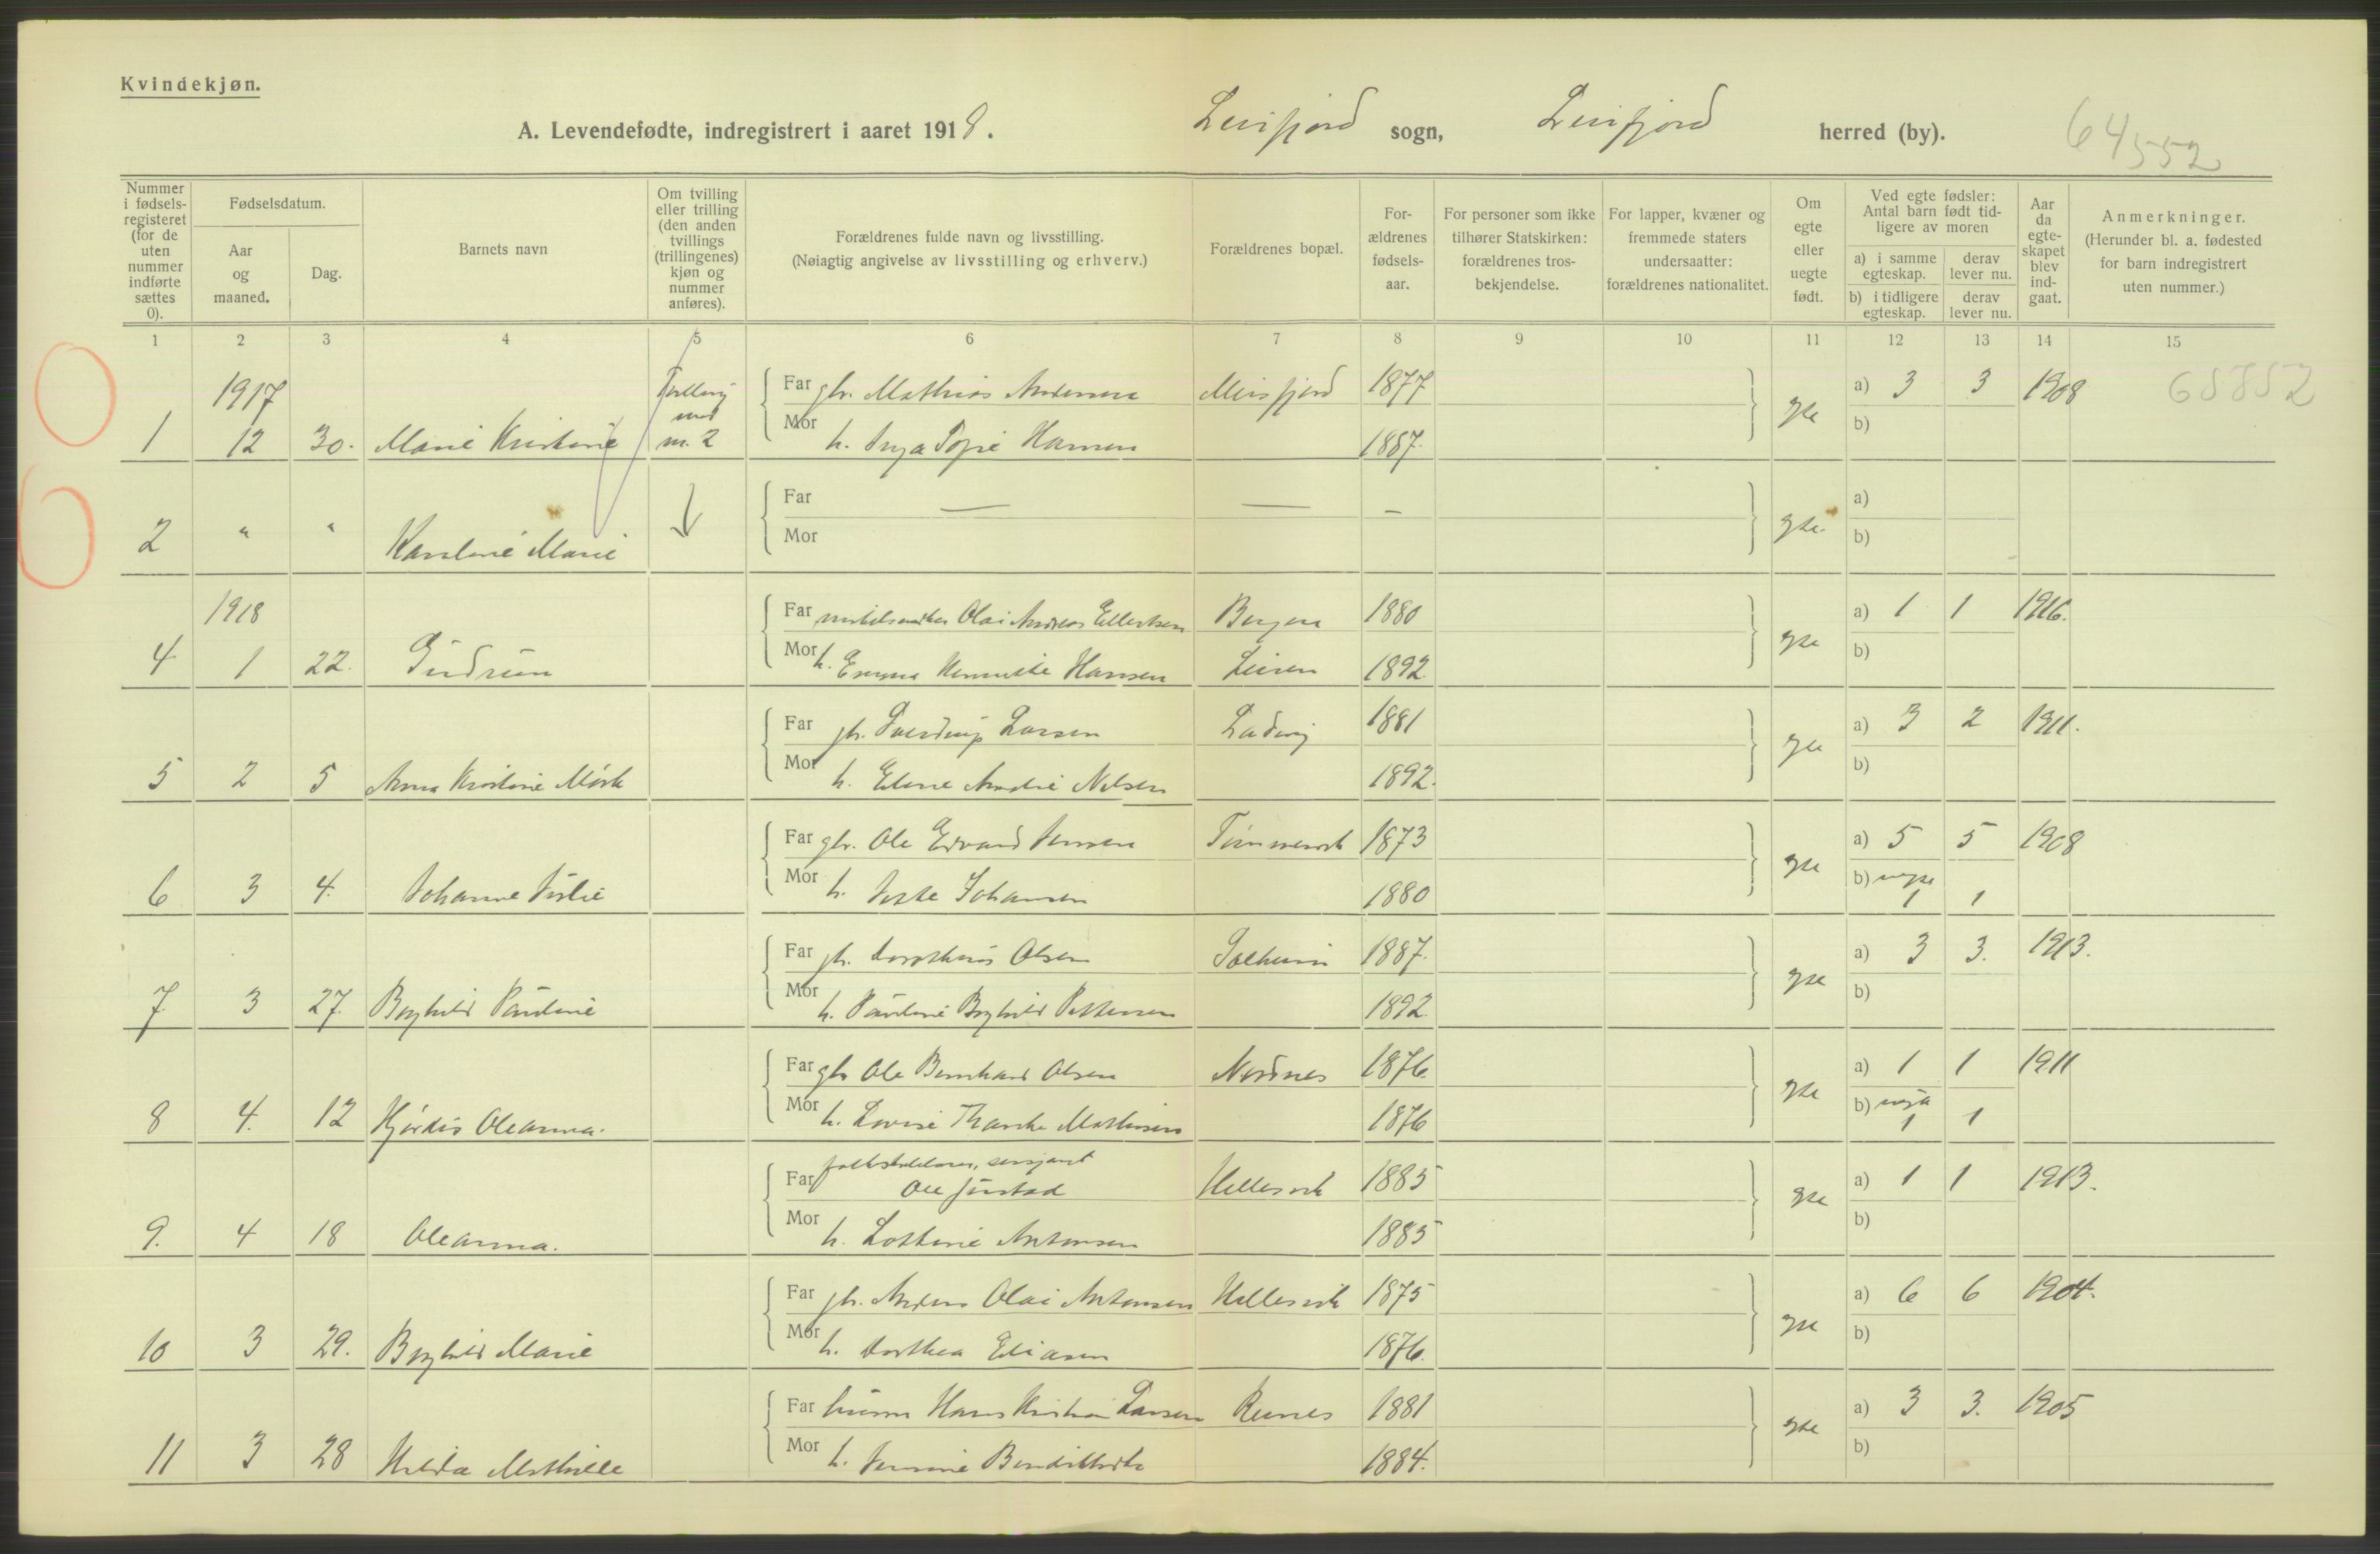 Kvindekjøn.
A. Levendefødte, indregistrert i aaret 1918. Leirfjord sogn, Leirfjord herred (by). 64552
Nummer i fødsels-registeret (for de uten nummer indførte sættes 0).
Fødselsdatum.
Aar og maaned.
Dag.
Barnets navn
Om tvilling eller trilling (den anden tvillings (trillingenes) kjøn og nummer anføres).
Forældrenes fulde navn og livsstilling.
(Nøiagtig angivelse av livsstilling og erhverv.)
Forældrenes bopæl.
For-ældrenes fødsels-aar.
For personer som ikke tilhører Statskirken: forældrenes tros-bekjendelse.
For lapper, kvæner og fremmede staters undersaatter: forældrenes nationalitet.
Om egte eller uegte født.
Ved egte fødsler: Antal barn født tid-ligere av moren
a) i samme egteskap.
derav lever nu.
b) i tidligere egteskap.
derav lever nu.
Aar da egte-skapet blev ind-gaat.
Anmerkninger.
(Herunder bl. a. fødested for barn indregistrert uten nummer.)
1 2 3 4 5 6 7 8 9 10 11 12 13 14 15
1917 Tvilling med Far gbr. Mathias Andersen Meisfjord 1877 a) 3 3 1908
1 12 30. Marie Kristine nr. 2 Mor h. Inga Sofie Hansen 1887. gte b)
Far — — — a)
2 " " Karoline Marie Mor gte. b)
1918 Far Olai Andreas Ellertsen Bergen 1880 a) 1 1 1916.
4 1 22. Gudrun Mor h. Emma Hansen Leiren 1892. gte b)
Far gbr. Sverdrup Larsen Ladvig 1881 a) 3 2 1911.
5 2 5 Anna Kristine Mørk Mor h. Elene Amalie Nilsen 1892. gte b)
Far gbr. Ole Edvard Jensen 1873 a) 5 5 1908
6 3 4. Johanne Julie Mor h. Johansen 1880 gte b) uegte 1 1
Far gbr. Dorotheus Olsen Solheim 1887. a) 3 3. 1913.
7 3 27. Borghild Pauline Mor h. Pauline Borghild Pettersen 1892. gte b)
Far gbr Ole Bernhard Olsen Nordnes 1876. a) 1 1 1911
8 4. 12 Hjørdis Oleanna. Mor h. Lovise Mathisen 1876 gte b) uegte 1 1
Far sersjant Ole Hellesvik 1885 a) 1 1 1913.
9. 4 18 Oleanna. Mor h. Lottine Antonsen 1885 gte b)
Far gbr. Anders Olai Antonsen Hellesvik 1875 a) 6 6 1904.
10 3 29. Borghild Marie Mor h. Dorthea Eliasen 1876. gte b)
Far Hans Kristian Larsen Reines 1881 a) 3 3. 1905
11 3 28 Hilda Mathilde Mor h. Jensine 1884. gte b)